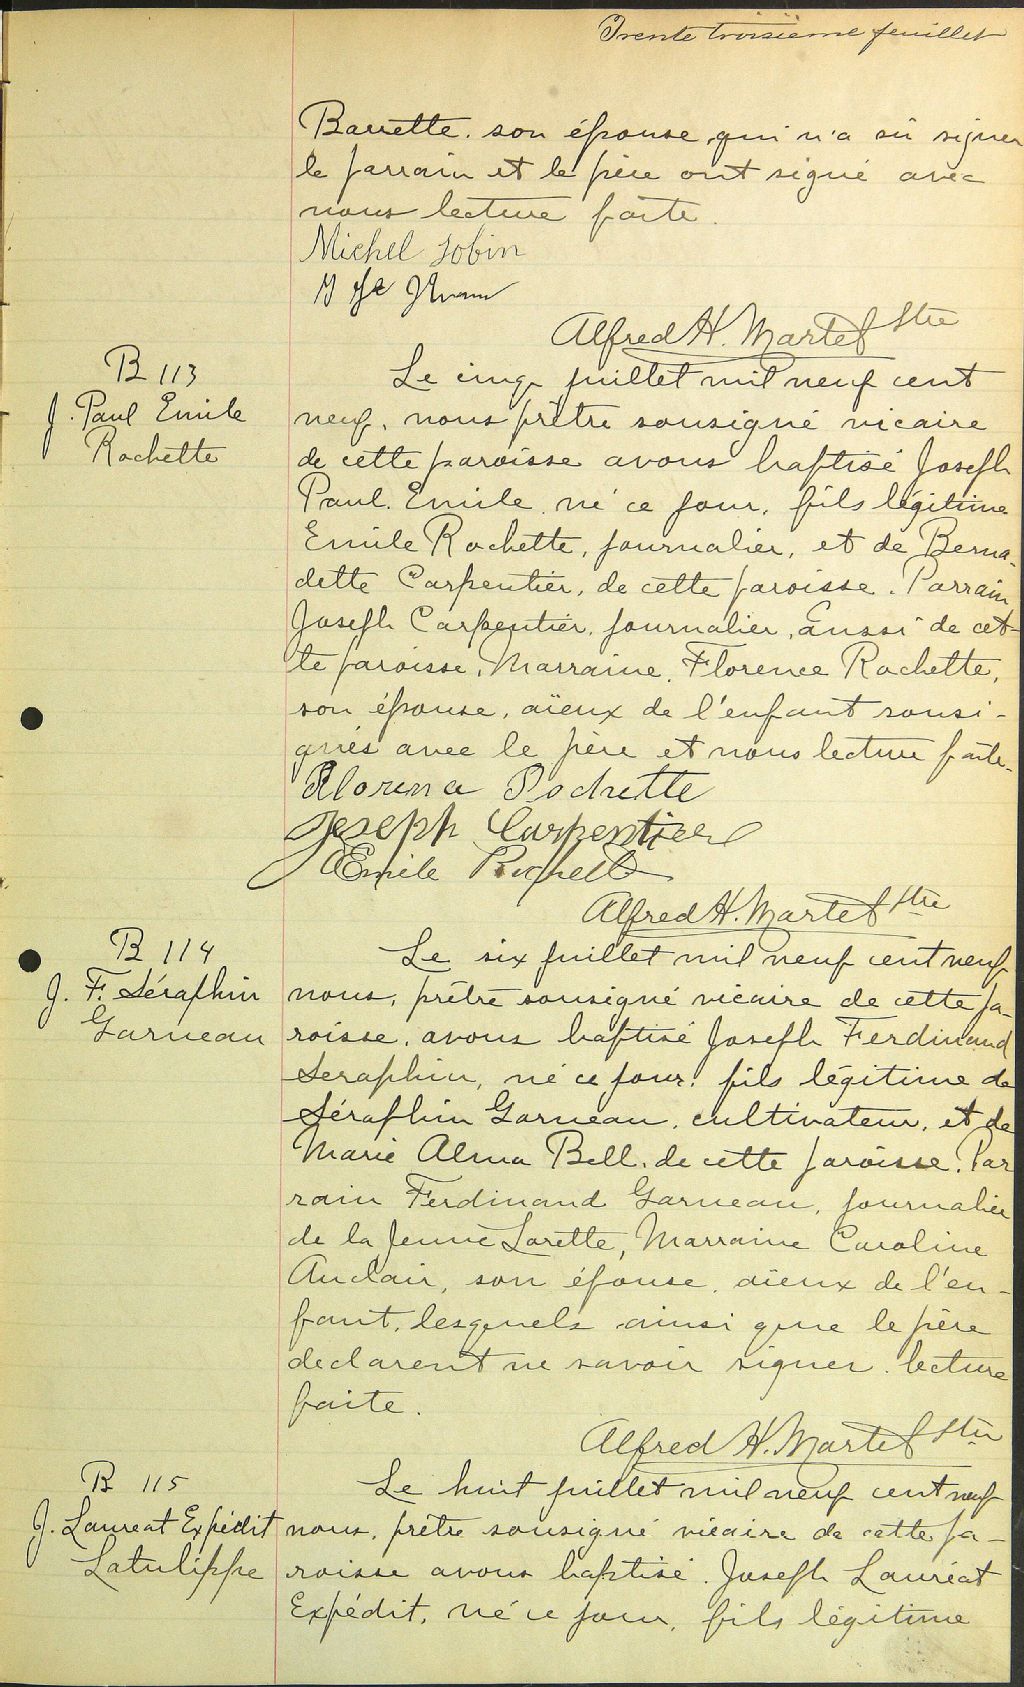 Trente troisième feuillet
Barrette. son épouse, qui n'a su signer
le parrain et le père ont signé avec
nous lecture faite.
Michel Jobin
Alfred H. Martel Ptre
B 113
J. Paul Emile
Rochette
Le cinq juillet mil neuf cent
neuf, nous prêtre sousigné vicaire
de cette paroisse avons baptisé Joseph
Paul. Emile, né ce jour, fils légitime
Emile Rochette, journalier, et de Berna-
dette Carpentier, de cette paroisse. Parrain
Joseph Carpentier, journalier, aussi de cet-
te paroisse, Marraine, Florence Rochette,
son épouse, aïeux de l'enfant sousi-
gnés avec le père et nous lecture faite.
Florence Rochette
Joseph Carpentier
Emile Rochette
Alfred H. Martel Ptre
B 114
J. F. Séraphin
Garneau
Le six juillet mil neuf cent neuf
nous, prêtre sousigné vicaire de cette pa-
roisse, avons baptisé Joseph Ferdinand
Seraphin, né ce jour, fils légitime de
Séraphin Garneau, cultivateur, et de
Marie Alma Bell, de cette paroisse. Par
rain Ferdinand Garneau, journalier
de la Jeune Lorette, Marraine Caroline
Auclair, son épouse, aïeux de l'en-
fant, lesquels ainsi que le père
declarent ne savoir signer. lecture
faite.
Alfred H. Martel Ptre
B 115
J. Laureat Expédit
Latulippe
Le huit juillet mil neuf cent neuf
nous, prêtre sousigné vicaire de cette pa-
roisse avons baptisé. Joseph Lauréat
Expédit, né ce jour, fils légitime